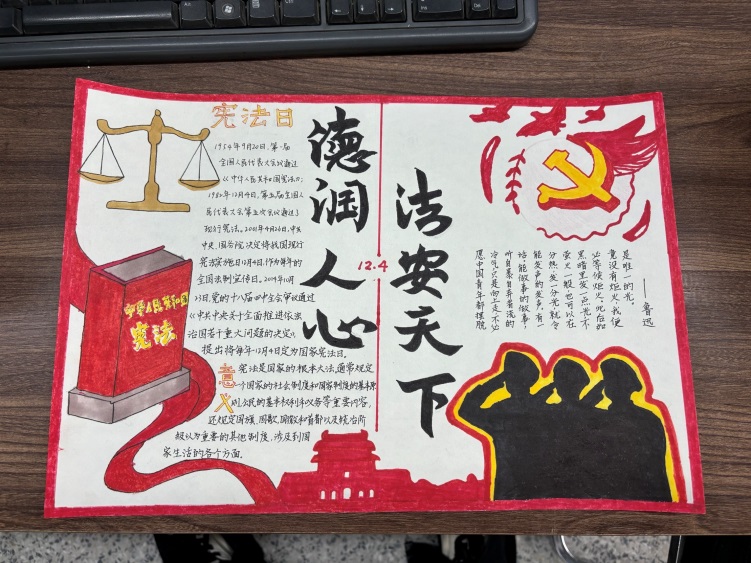 宪法日
1954年9月20日,第一届
全国人民代表大会议通过
《中华人民共和国宪法》;
1982年12月4日,第五届全国人
民代表大会第五次会议通过了
现行宪法。2001年4月26日,中共
中央、国务院决定将我国现行
宪法实施日12月4日,作为每年的
全国法制宣传日。2014年10月
23日,党的十八届四中全会审议通过
《中共中央关于全面推进依法
治国若干重大问题的决定》,
提出将每年12月4日定为国家宪法日。
中华人民共和国
宪法
意义
宪法是国家的根本大法通常规定
一个国家的社会制度和国家制度的基本原
则公民的基本权利和义务等重要内容,
还规定国旗,国歌,国徽和首都以及统治阶
级认为重要的其他制度,涉及到国
家生活的各个方面.
德润人心
12.4
法安天下
愿中国青年都摆脱
冷气只是向上走不必
听自暴自弃者流的
话,能做事的做事,
能发声的发声,有一
分热,发一分光,就令
萤火一般,也可以在
黑暗里发一点光,不
必等候炬火,此后如
竟没有炬火,我便
是唯一的光。
——鲁迅